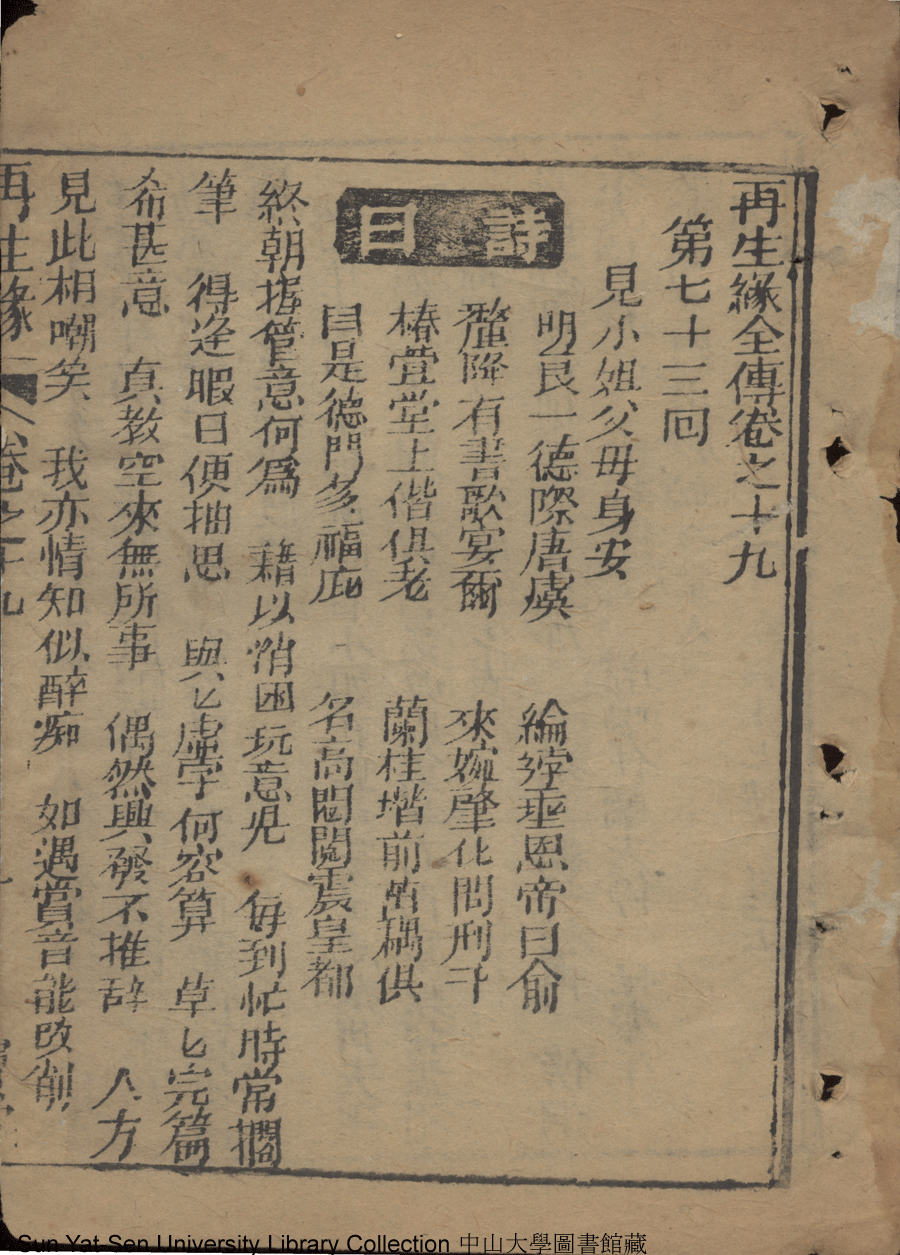 再生緣全傳卷之十九
第七十三回
見小姐父母身安
詩曰
明良一德際唐虞　綸綍垂恩帝曰俞
釐降有書歌宴爾　來嬪肇化問刑于
椿萱堂上偕俱老　蘭桂堦前苗耦俱
自是德門多福庇　名高閥閱震皇都
終朝握管意何為　藉以消困玩意兒　每到忙時常擱
筆　得逢暇日便抽思　與匕虛字何容算　草匕完篇
希甚意　真教空來無所事　偶然興發不推辞　人方
見此相嘲笑　我亦情知似醉痴　如遇賞音能改削
再生緣　卷之十九
Sun Yat-Sen University Library Collection 中山大學圖書館藏